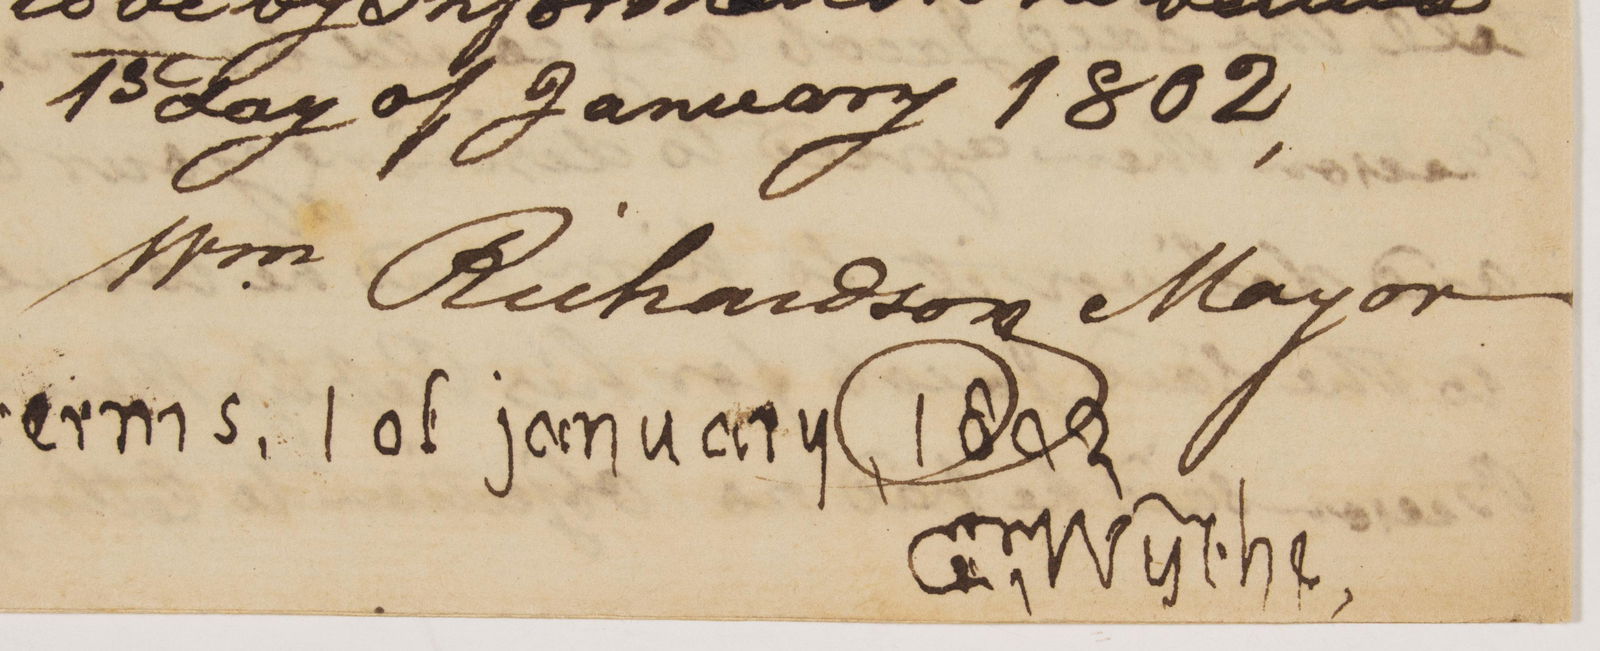 by Information
1st day of January 1802,
Wm Richardson Mayor
1 of january, 1802
G. Wythe,